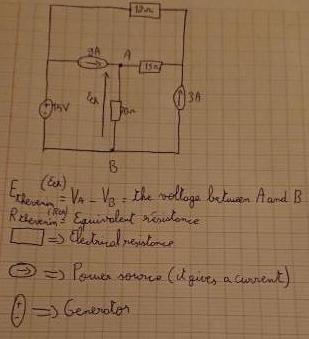 10Ω
2A
A
15Ω
3A
Eth
15V
B
Ethevenin (Eth) = VA - VB = the voltage between A and B
Rthevenin (Rth) = Equivalent résistance
=> Electrical resistance
=> Power source (it gives a current)
=> Generator